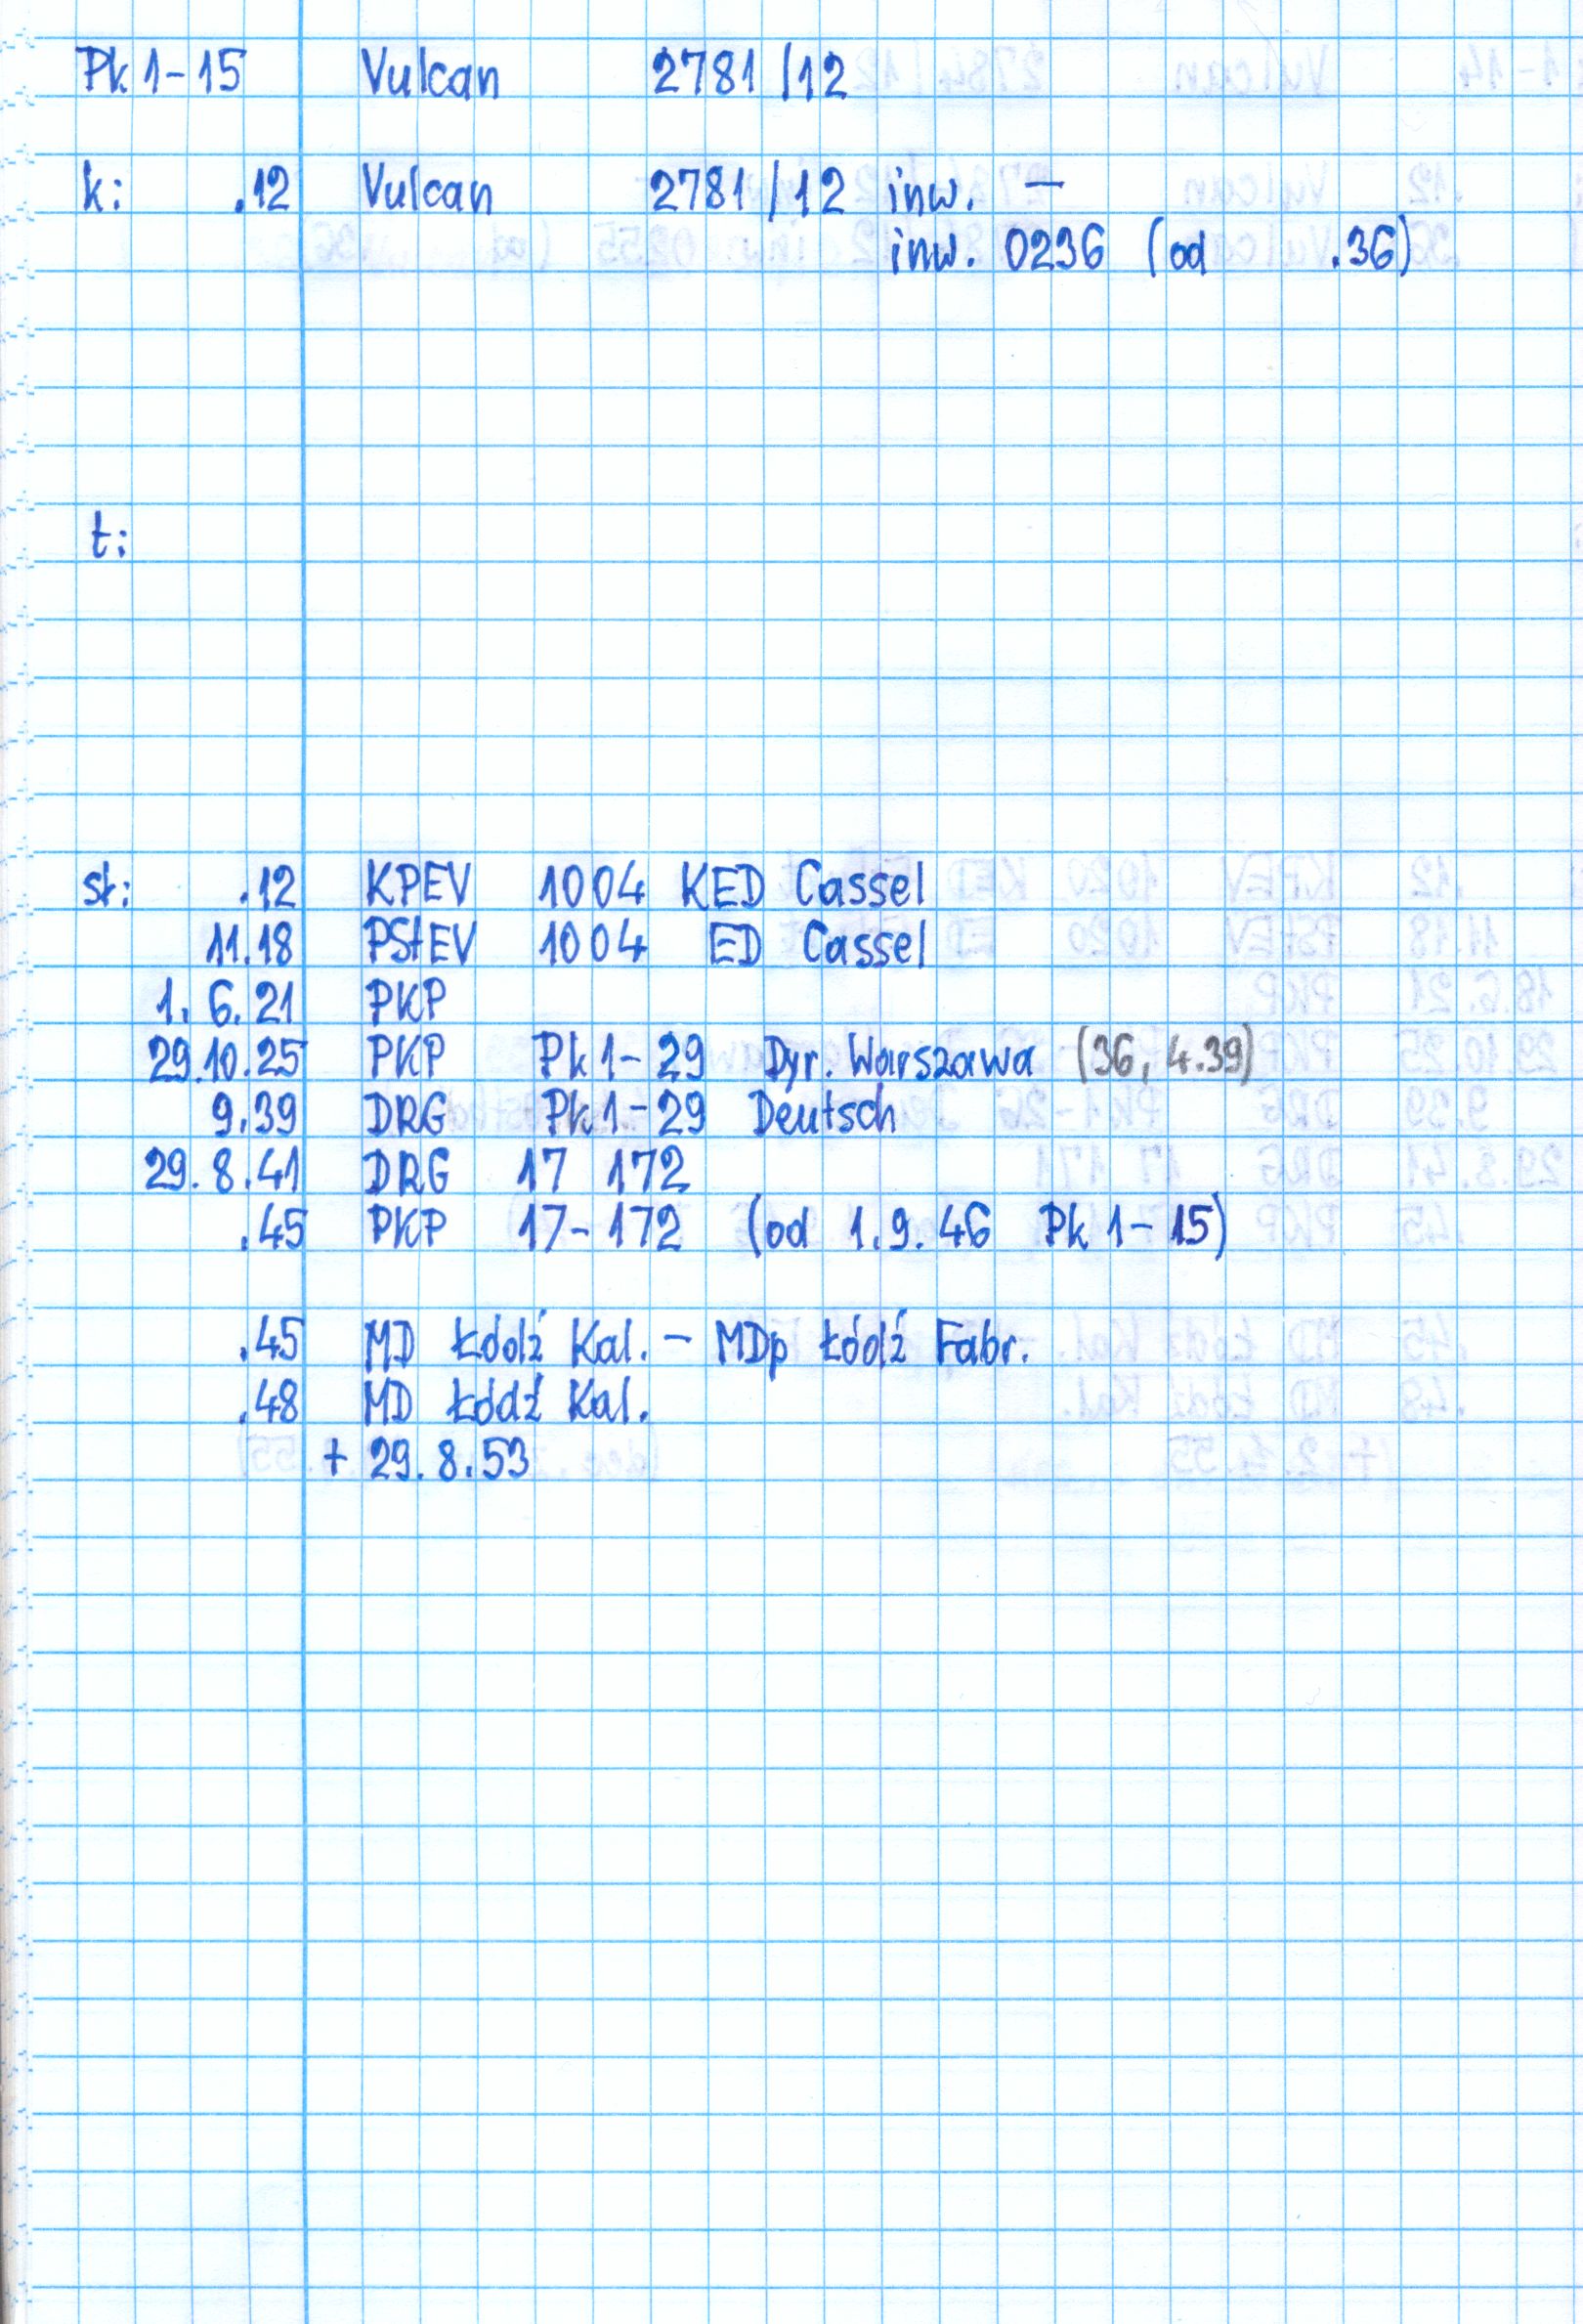 Pk 1-15 Vulcan 2781/12
k: .12 Vulcan 2781/12 inw. —
inw. 0236 (od .36)
t:
st: .12 KPEV 1004 KED Cassel
11.18 PStEV 1004 ED Cassel
1.6.21 PKP
29.10.25 PKP Pk 1-29 Dyr. Warszawa (36, 4.39)
9.39 DRG Pk 1-29 Deutsch
29.8.41 DRG 17 172
.45 PKP 17-172 (od 1.9.46 Pk 1-15)
.45 MD Łódź Kal. - MDp Łódź Fabr.
.48 MD Łódź Kal.
+ 29.8.53